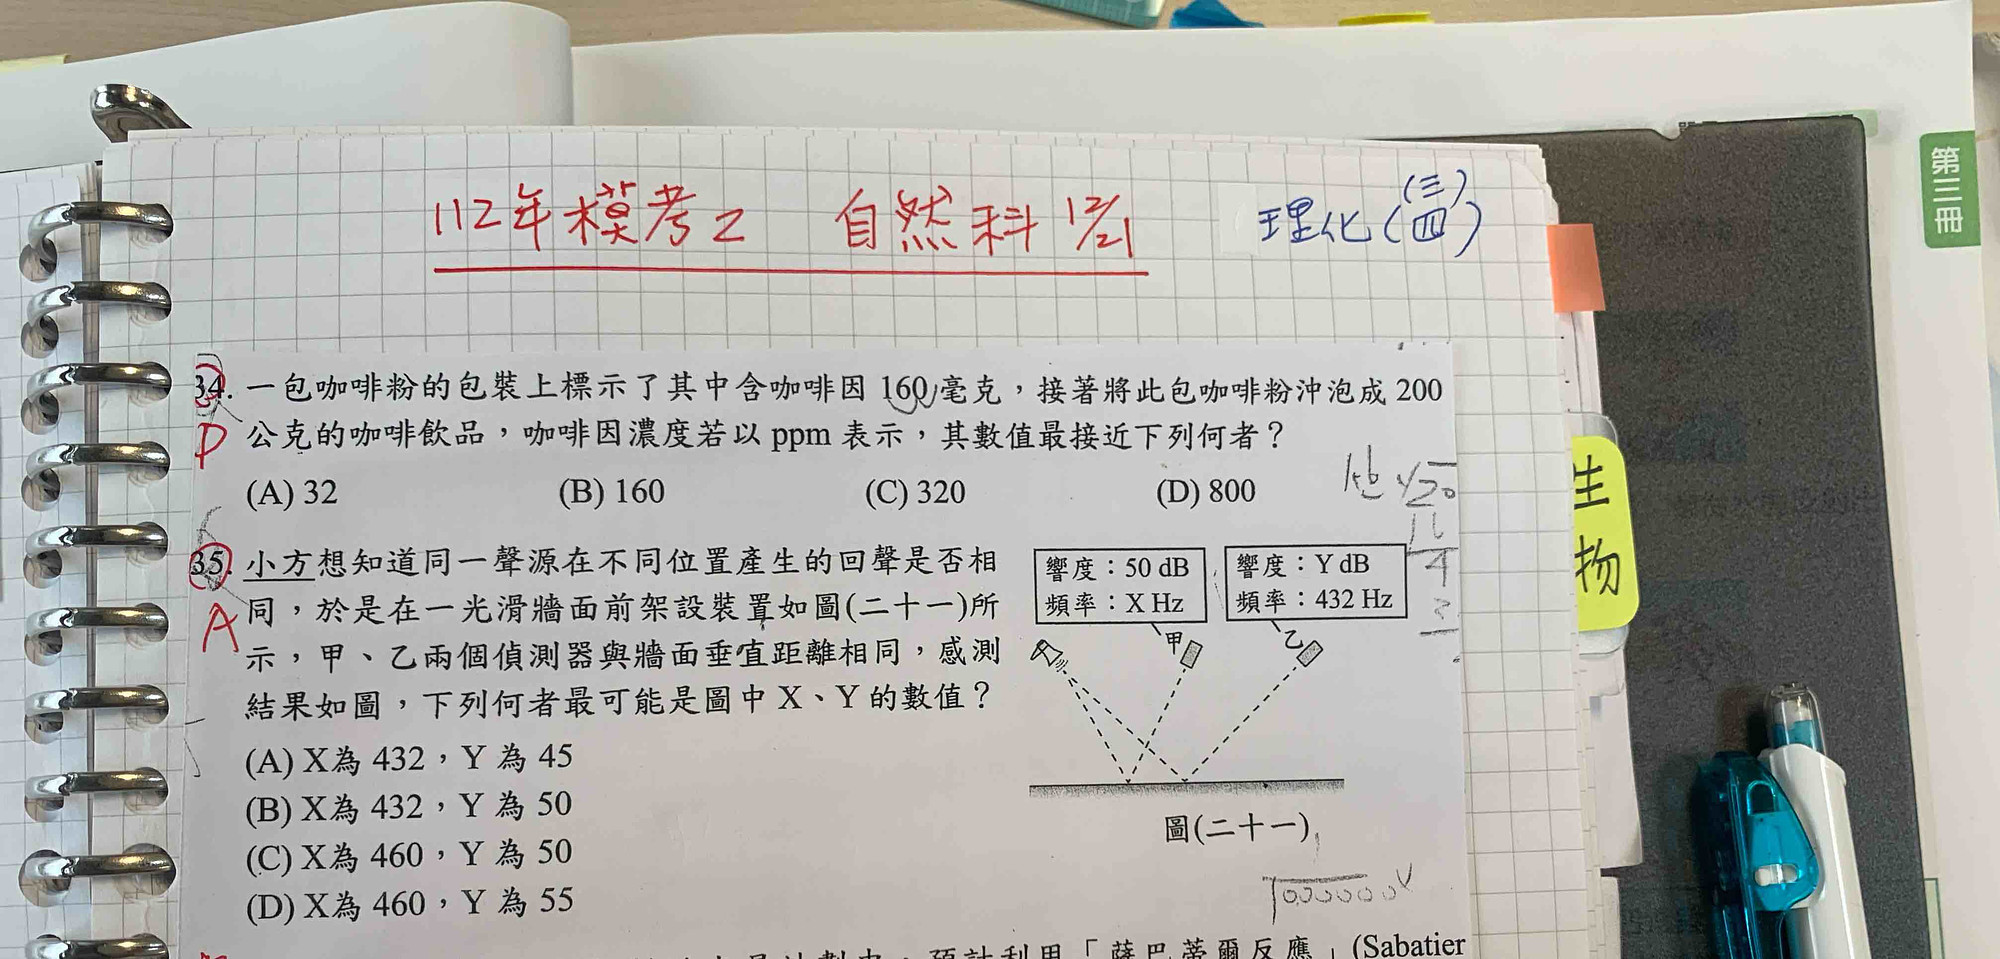 第三冊
112年模考2 自然科 12/21 理化(三)(四)
34. 一包咖啡粉的包裝上標示了其中含咖啡因 160 毫克，接著將此包咖啡粉沖泡成 200
D 公克的咖啡飲品，咖啡因濃度若以 ppm 表示，其數值最接近下列何者？
(A) 32 (B) 160 (C) 320 (D) 800
生物
35. 小方想知道同一聲源在不同位置產生的回聲是否相
同，於是在一光滑牆面前架設裝置如圖(二十一)所
A
示，甲、乙兩個偵測器與牆面垂直距離相同，感測
結果如圖，下列何者最可能是圖中 X、Y 的數值？
響度：50 dB
頻率：X Hz
響度：Y dB
頻率：432 Hz
甲
乙
圖(二十一)
(A) X為 432，Y 為 45
(B) X為 432，Y 為 50
(C) X為 460，Y 為 50
(D) X為 460，Y 為 55
預計利用「薩巴蒂爾反應」(Sabatier